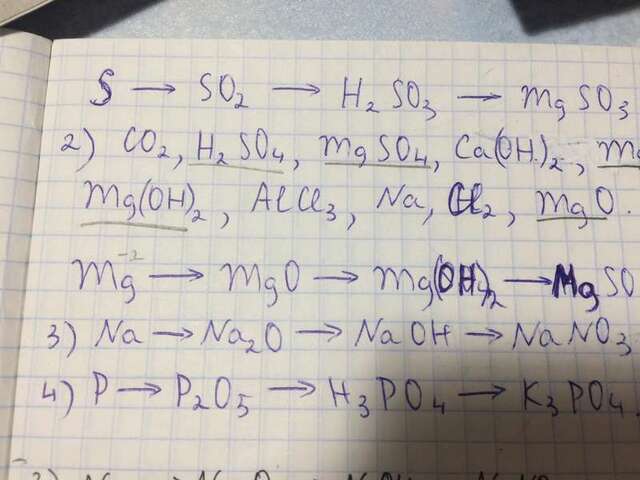 S → SO₂ → H₂SO₃ → MgSO₃
2) CO₂, H₂SO₄, MgSO₄, Ca(OH)₂,
Mg(OH)₂, AlCl₃, Na, Cl₂, MgO.
Mg⁻² → MgO → Mg(OH)₂ → MgSO
3) Na → Na₂O → NaOH → NaNO₃
4) P → P₂O₅ → H₃PO₄ → K₃PO₄.